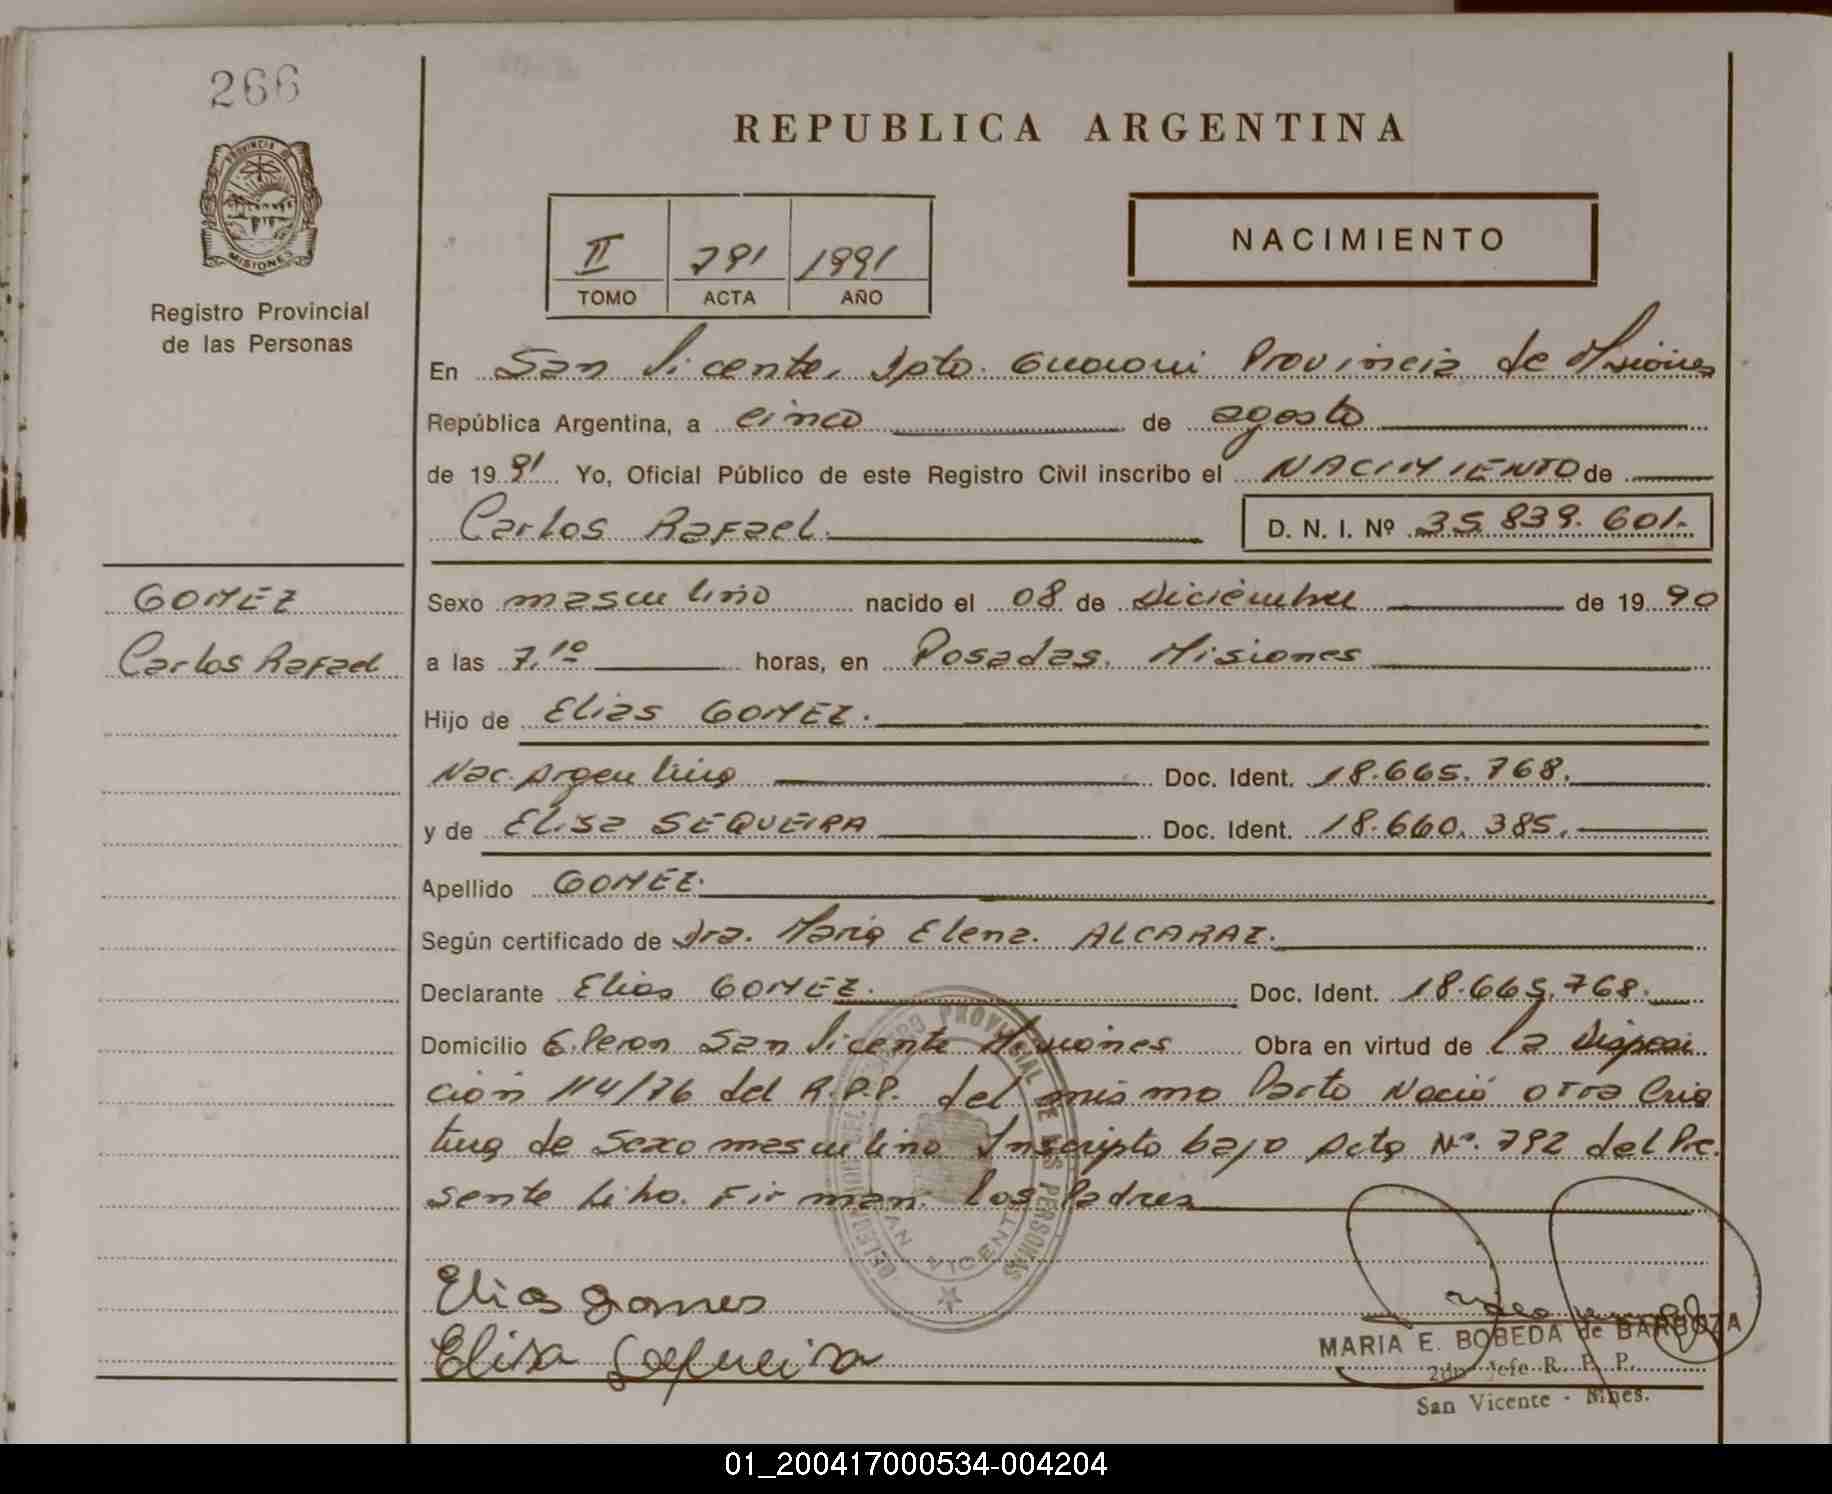 266
PROVINCIA DE
MISIONES
Registro Provincial
de las Personas
GOMEZ
Carlos Rafael
REPUBLICA ARGENTINA
II 791 1991
TOMO ACTA AÑO
NACIMIENTO
En San Vicente, Dpto. Guarani Provincia de Misiones
República Argentina, a cinco de agosto
de 19 91 Yo, Oficial Público de este Registro Civil inscribo el NACIMIENTO de
Carlos Rafael. D. N. I. Nº 35.839.601.
Sexo masculino nacido el 08 de Diciembre de 19 90
a las 7,10 horas, en Posadas. Misiones
Hijo de Elias GOMEZ.
Nac. Argentina Doc. Ident. 18.665.768.
y de Elisa SEQUEIRA Doc. Ident. 18.660.385.
Apellido GOMEZ.
Según certificado de Dra. Maria Elena. ALCARAZ.
Declarante Elias GOMEZ. Doc. Ident. 18.665.768.
Domicilio E. Peron San Vicente Misiones Obra en virtud de la Disposi
ción 114/76 del R.P.P. del mismo Parto Nació otra Cria
tura de Sexo masculino Inscripto bajo Acta Nº. 792 del Pre
sente Libro. Firman: los Padres
REGISTRO PROVINCIAL DE LAS PERSONAS
SAN VICENTE
Elias gomes
Elisa Seqqueira
MARIA E. BOBEDA de BARBOZA
2do Jefe R. P. P.
San Vicente - Mnes.
01_200417000534-004204